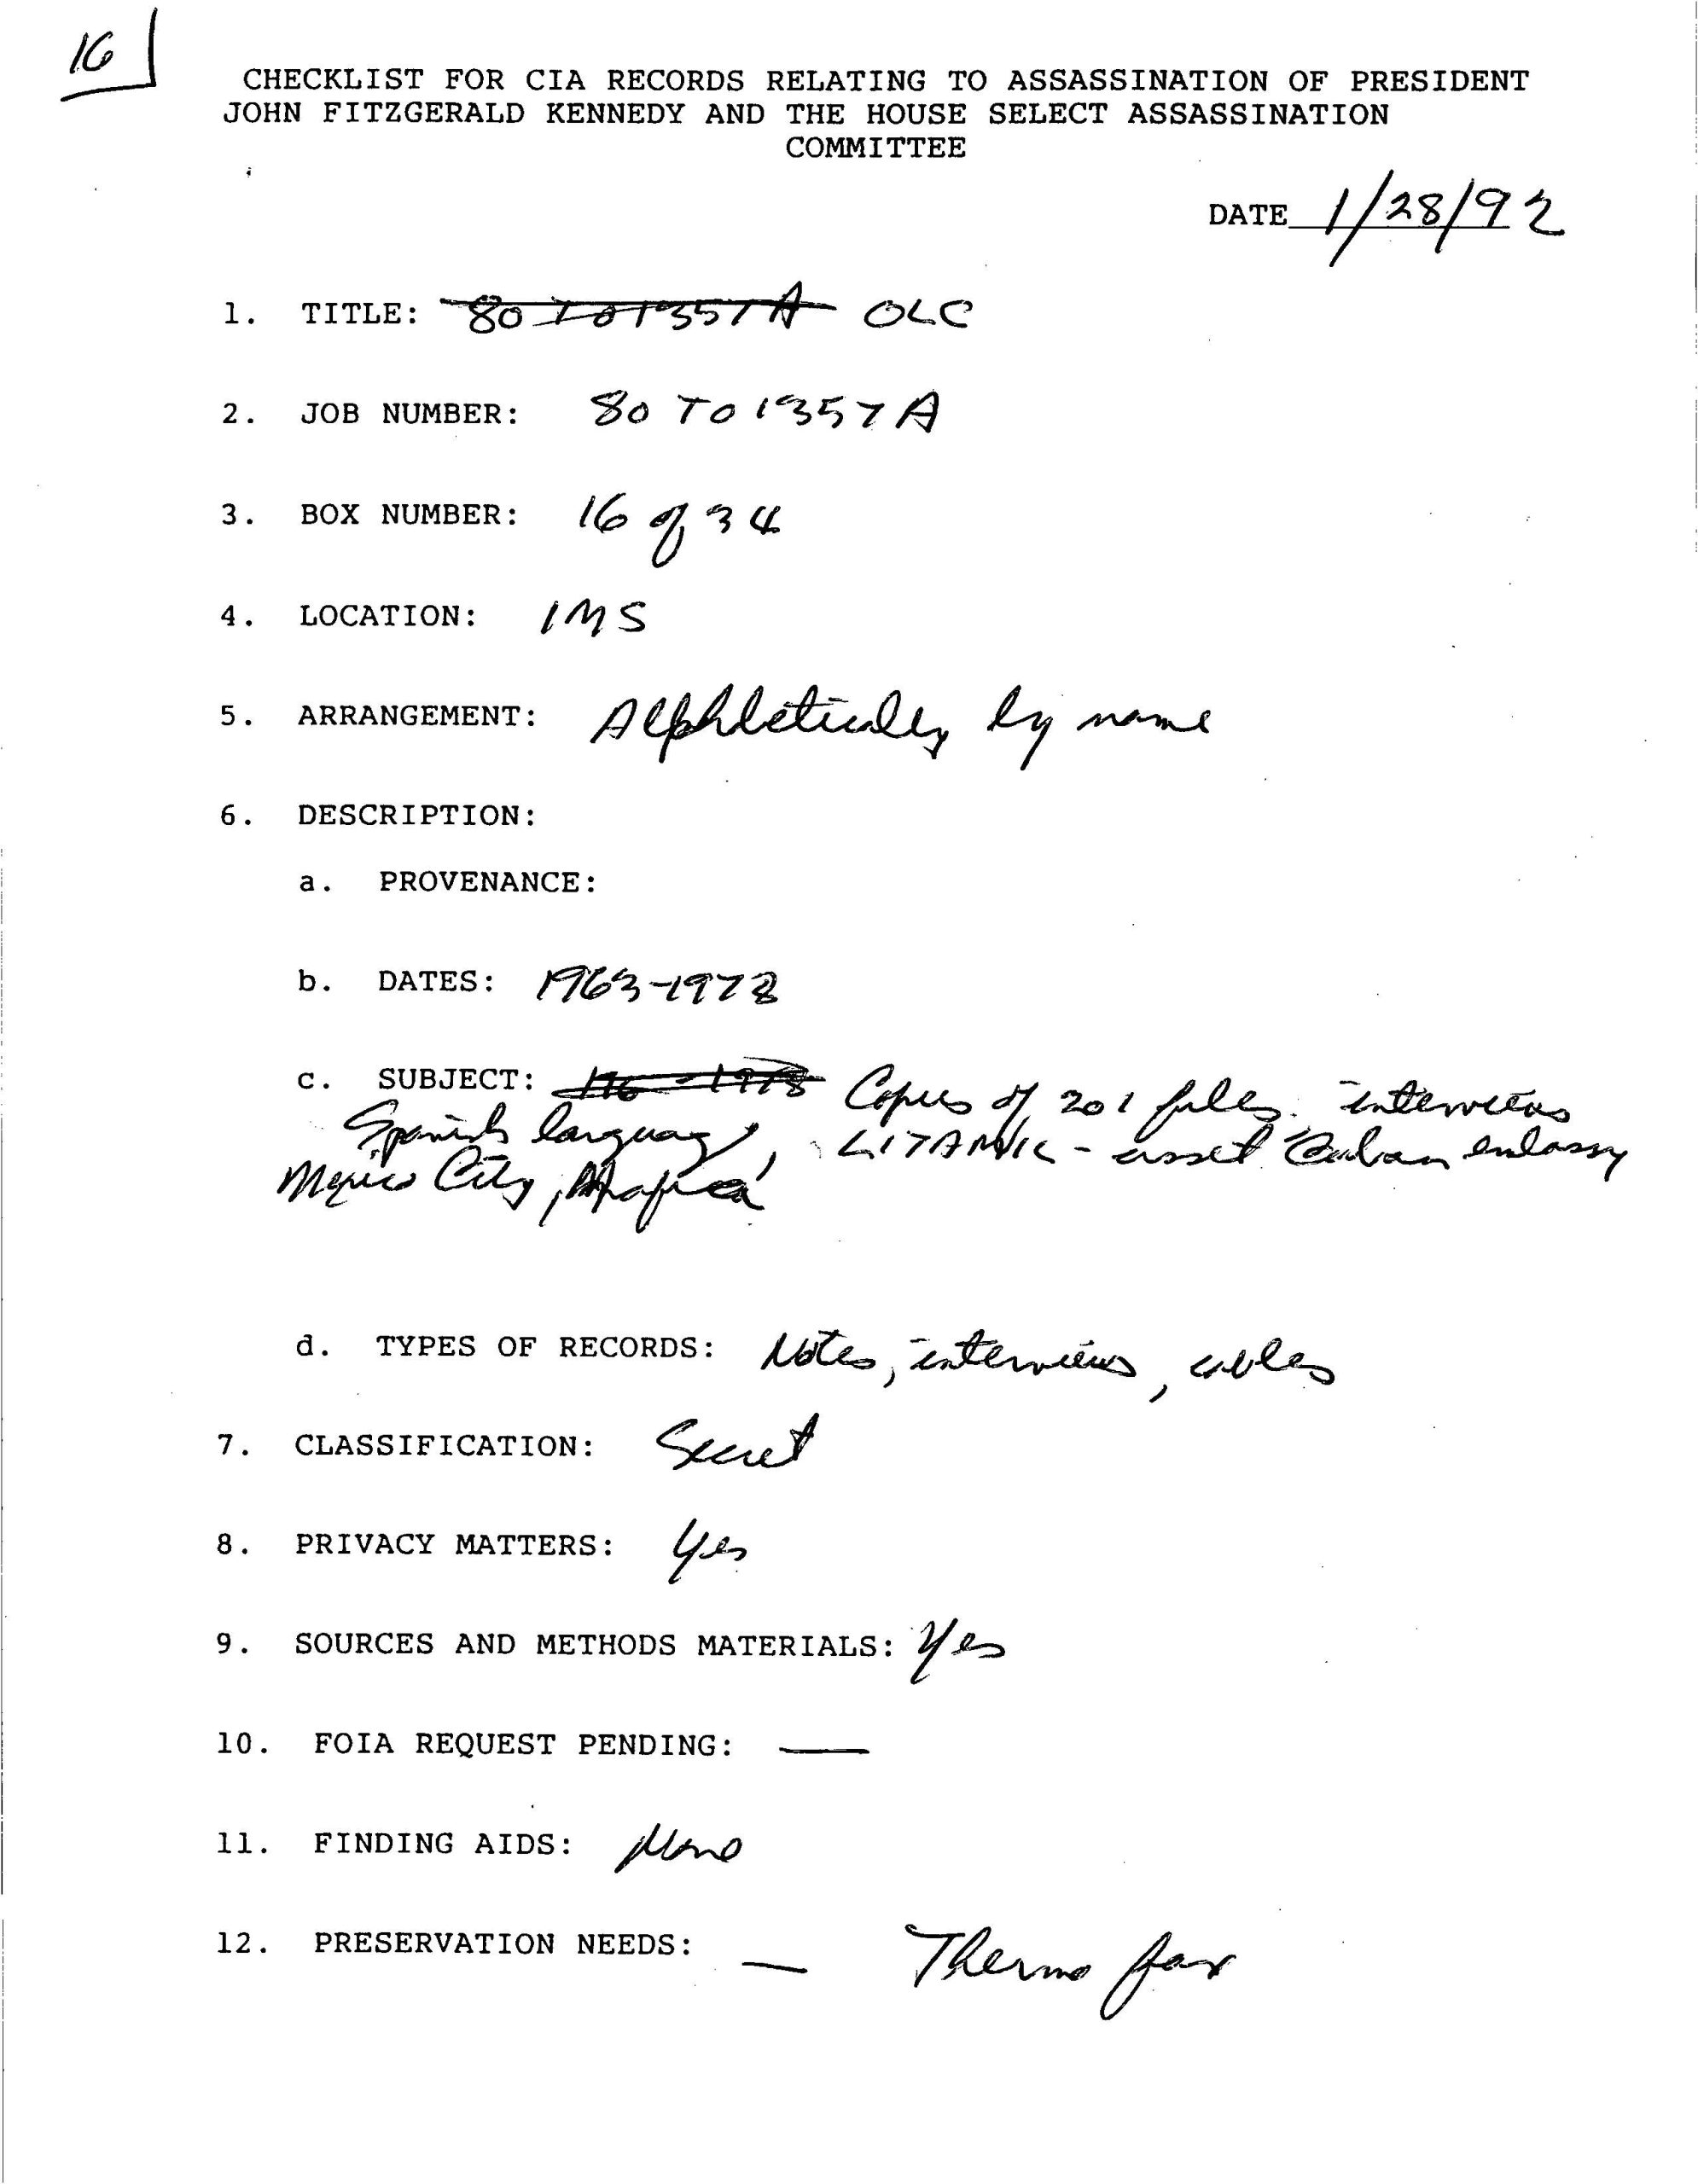 16
CHECKLIST FOR CIA RECORDS RELATING TO ASSASSINATION OF PRESIDENT
JOHN FITZGERALD KENNEDY AND THE HOUSE SELECT ASSASSINATION
COMMITTEE
DATE 1/28/92
1. TITLE: 80T01357A OLC
2. JOB NUMBER: 80T01357A
3. BOX NUMBER: 16 of 34
4. LOCATION: IMS
5. ARRANGEMENT: Alphbetically by name
6. DESCRIPTION:
a. PROVENANCE:
b. DATES: 1963-1978
c. SUBJECT: Copies of 201 files. interviews
Spanish language, LITAMIL - asset Cuban embassy
Mexico City,
d. TYPES OF RECORDS: Notes, interviews, cables
7. CLASSIFICATION: Secret
8. PRIVACY MATTERS: Yes
9. SOURCES AND METHODS MATERIALS: Yes
10. FOIA REQUEST PENDING: —
11. FINDING AIDS: None
12. PRESERVATION NEEDS: — Thermo fax